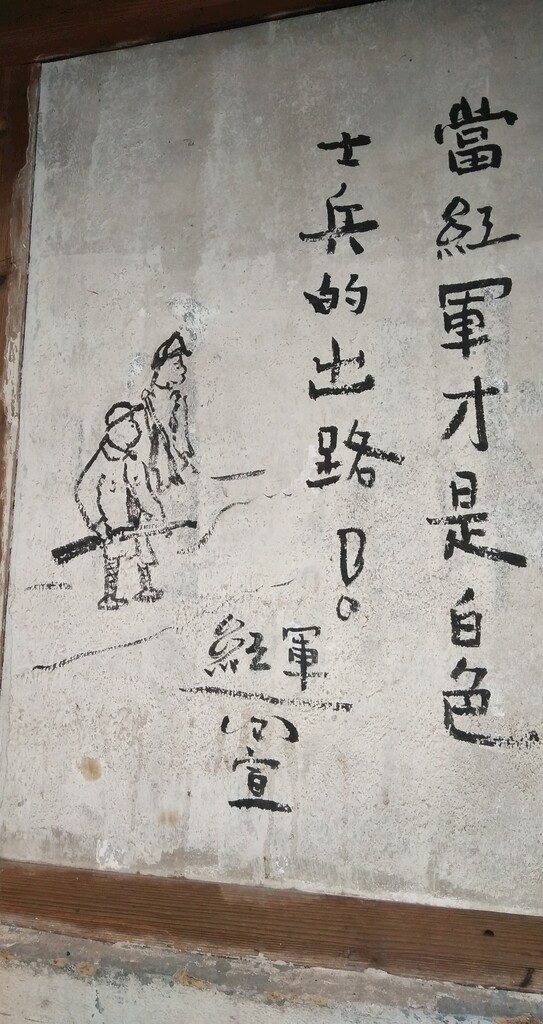 當紅軍才是白色
士兵的出路！
紅軍
宣